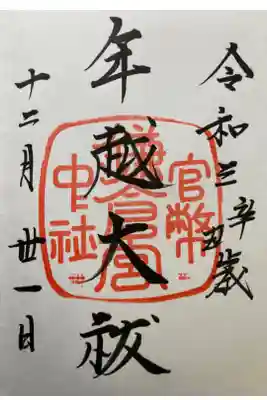 令和三辛丑歳
年越大祓
十二月卅一日
官幣
中社
鎌倉宮